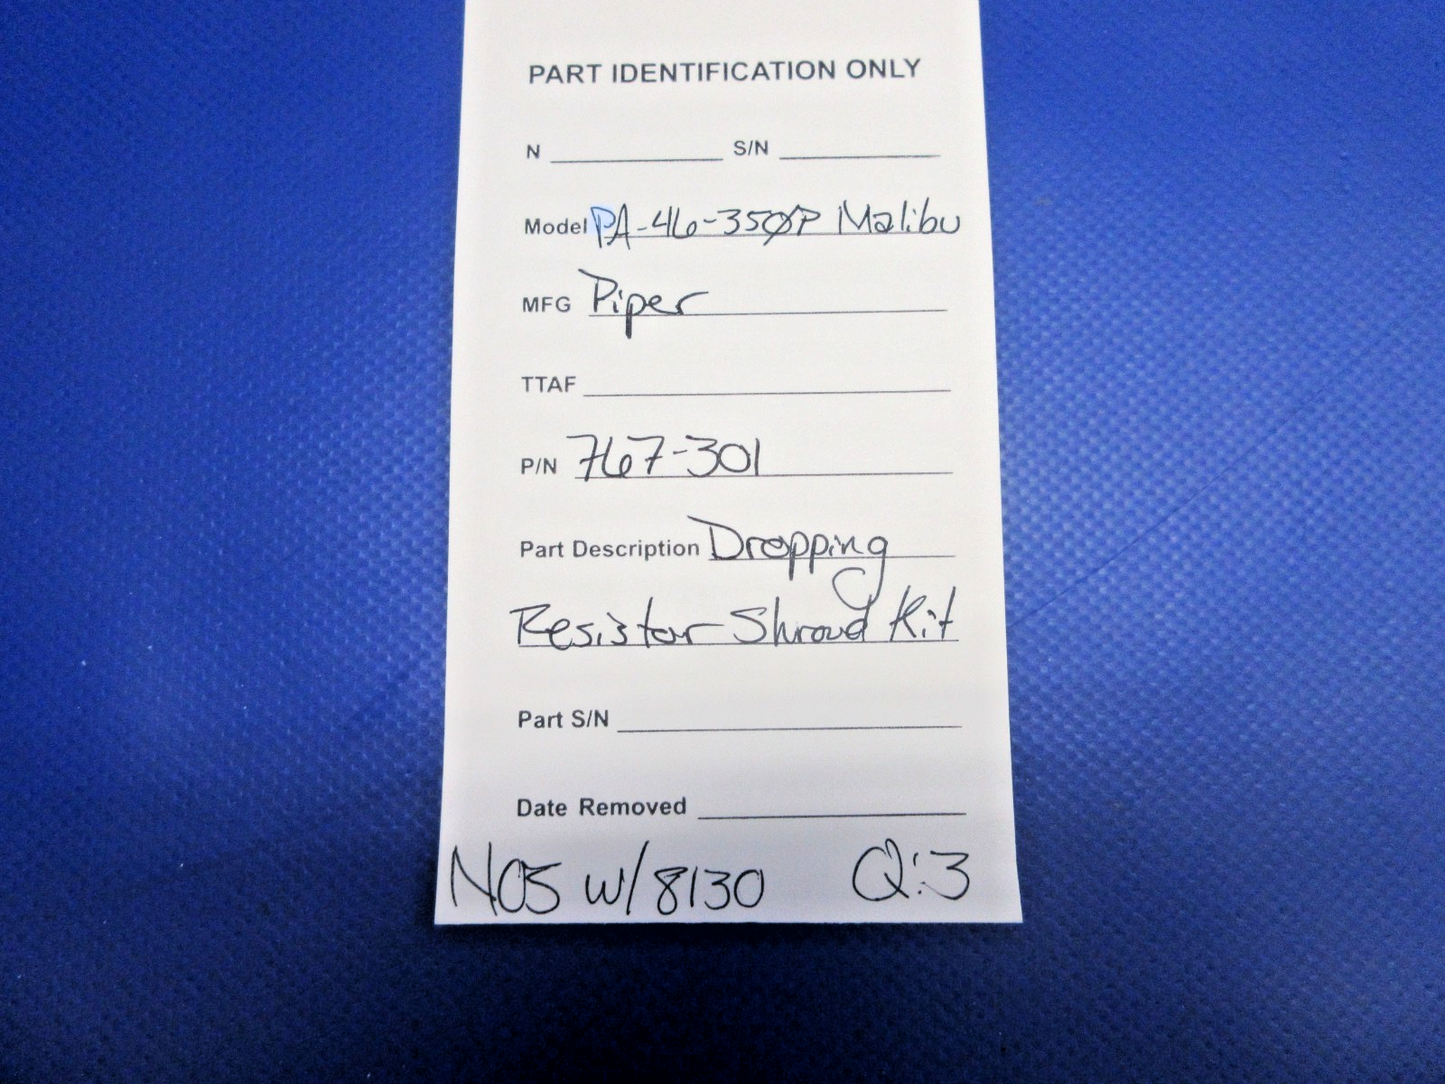 PART IDENTIFICATION ONLY
N S/N
Model PA-46-350P Malibu
MFG Piper
TTAF
P/N 767-301
Part Description Dropping
Resistor Shroud Kit
Part S/N
Date Removed
NOS w/8130 Q:3